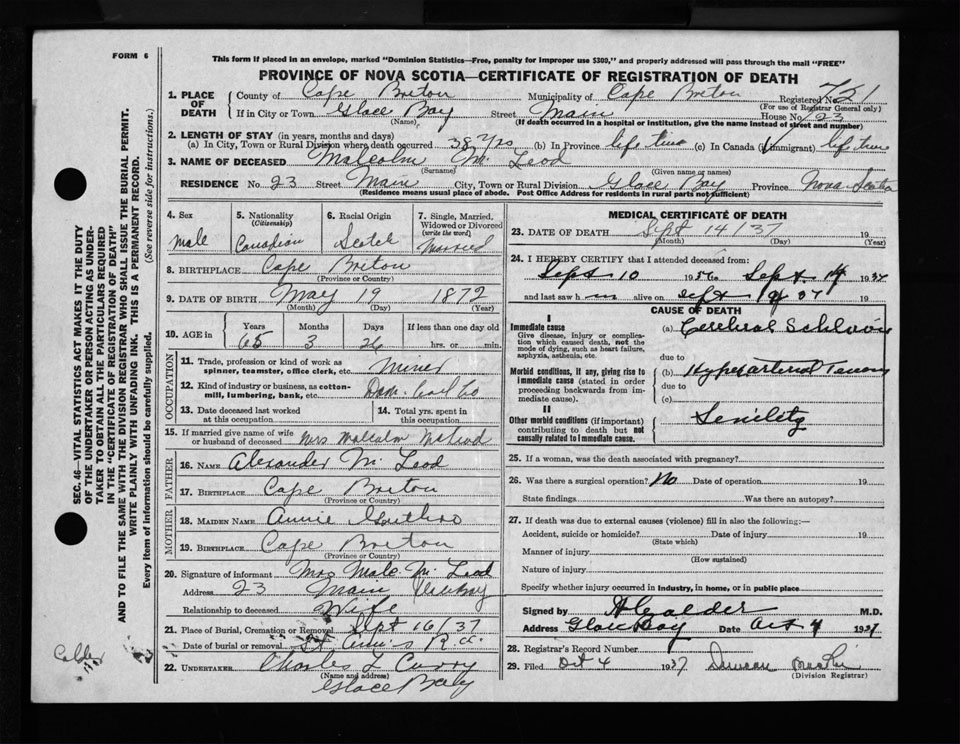 FORM 6
This form if placed in an envelope, marked "Dominion Statistics—Free, penalty for improper use $300," and properly addressed will pass through the mail "FREE"
PROVINCE OF NOVA SCOTIA—CERTIFICATE OF REGISTRATION OF DEATH
1. PLACE OF DEATH
County of Cape Breton Municipality of Cape Breton Registered No. 751
(For use of Registrar General only)
If in City or Town Glace Bay Street Main House No. 23
(Name) (If death occurred in a hospital or institution, give the name instead of street and number)
2. LENGTH OF STAY (in years, months and days)
(a) In City, Town or Rural Division where death occurred 38 yrs (b) In Province life time (c) In Canada (if immigrant) life time
3. NAME OF DECEASED Malcolm Mc Leod
(Surname) (Given name or names)
RESIDENCE No. 23 Street Main City, Town or Rural Division Glace Bay Province Nova Scotia
(Residence means usual place of abode. Post Office Address for residents in rural parts not sufficient)
4. Sex Male
5. Nationality (Citizenship) Canadian
6. Racial Origin Scotch
7. Single, Married, Widowed or Divorced (write the word) Married
8. BIRTHPLACE Cape Briton
(Province or Country)
9. DATE OF BIRTH May 19 1872
(Month) (Day) (Year)
10. AGE in Years Months Days If less than one day old
65 3 26 hrs. or min.
OCCUPATION
11. Trade, profession or kind of work as spinner, teamster, office clerk, etc. Miner
12. Kind of industry or business, as cotton-mill, lumbering, bank, etc. Dom. Coal Co
13. Date deceased last worked at this occupation
14. Total yrs. spent in this occupation
15. If married give name of wife or husband of deceased Mrs Malcolm McLeod
FATHER
16. NAME Alexander Mc Leod
17. BIRTHPLACE Cape Breton
(Province or Country)
MOTHER
18. MAIDEN NAME Annie
19. BIRTHPLACE Cape Breton
(Province or Country)
20. Signature of informant Mrs Malc. Mc Leod
Address 23 Main
Relationship to deceased Wife
21. Place of Burial, Cremation or Removal Sept 16/37
Date of burial or removal St Ann's
22. UNDERTAKER Charles L Curry
(Name and address)
Glace Bay
MEDICAL CERTIFICATE OF DEATH
23. DATE OF DEATH Sept 14/37 19
(Month) (Day) (Year)
24. I HEREBY CERTIFY that I attended deceased from:
Sept 10 19 to Sept 14 1937
and last saw h m alive on Sept 37 19
CAUSE OF DEATH
I
Immediate cause
Give disease, injury or complication which caused death, not the mode of dying, such as heart failure, asphyxia, asthenia, etc.
(a) Cerebral
due to
Morbid conditions, if any, giving rise to immediate cause (stated in order proceeding backwards from immediate cause).
(b)
due to
(c)
II
Other morbid conditions (if important) contributing to death but not causally related to immediate cause.
Senility
25. If a woman, was the death associated with pregnancy?
26. Was there a surgical operation? No Date of operation 19
State findings Was there an autopsy?
27. If death was due to external causes (violence) fill in also the following:—
Accident, suicide or homicide? Date of injury 19
(State which)
Manner of injury
(How sustained)
Nature of injury
Specify whether injury occurred in industry, in home, or in public place
Signed by M.D.
Address Glace Bay Date Oct 4 1937
28. Registrar's Record Number
29. Filed Oct 4 1937 Duncan
(Division Registrar)
SEC. 46—VITAL STATISTICS ACT MAKES IT THE DUTY
OF THE UNDERTAKER OR PERSON ACTING AS UNDER-
TAKER TO OBTAIN ALL THE PARTICULARS REQUIRED
IN THE "CERTIFICATE OF REGISTRATION OF DEATH"
AND TO FILE THE SAME WITH THE DIVISION REGISTRAR WHO SHALL ISSUE THE BURIAL PERMIT.
WRITE PLAINLY WITH UNFADING INK. THIS IS A PERMANENT RECORD.
Every item of information should be carefully supplied. (See reverse side for instructions.)